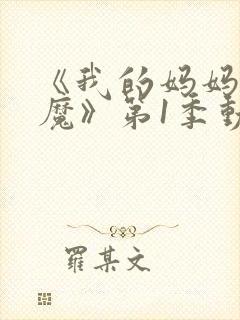 《我的妈妈
魔》第1季動
羅某文